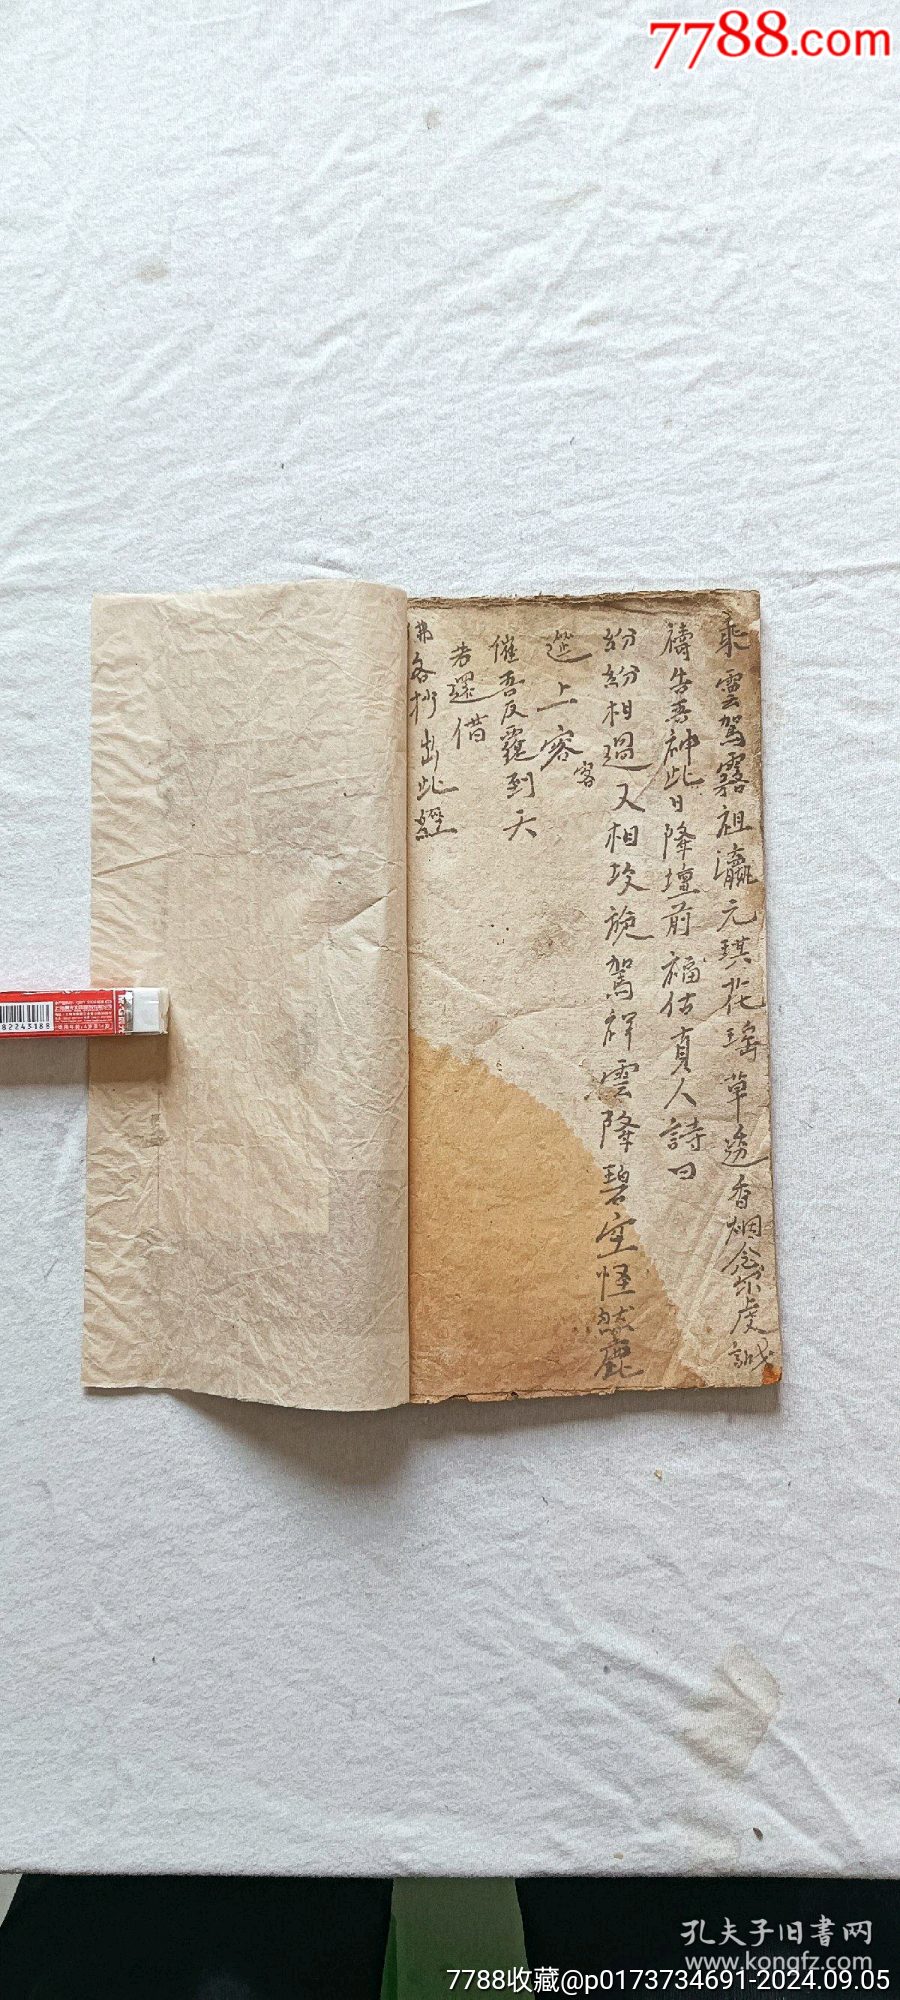 7788.com
乘雲駕霧祖瀛元琪花瑤草透香烟念尔虔誠
禱告吾神此日降壇前福佑真人詩曰
紛紛相過又相坎施駕祥雲降碧空怪然鹿
筵上容
客
催吾反霞到天
若還借
佛各抄出此經
82243188
孔夫子旧书网
www.kongfz.com
7788收藏@p0173734691-2024.09.05